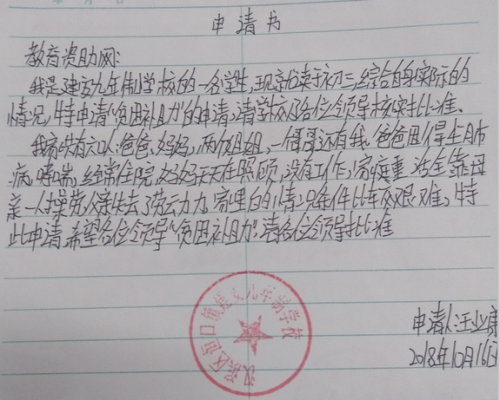 申请书
教育资助网:
我是建民九年制学校的一名学生,现就读于初三,综合自身实际的
情况,特申请"贫困补助"的申请,请学校及各位领导核实批准。
我家共有六口人,爸爸、妈妈,两个姐姐,一哥哥还有我,爸爸因得上肺
病,哮喘,经常住院,妈妈天天在照顾,没有工作,家庭重活全靠母
亲一人操劳,父亲失去了劳动力力,家里的情况条件比较艰难,特
此申请,希望各位领导"贫困补助",请各位领导批准
汉滨区恒口镇 九年制学校
申请人:汪业康
2018年10月16日